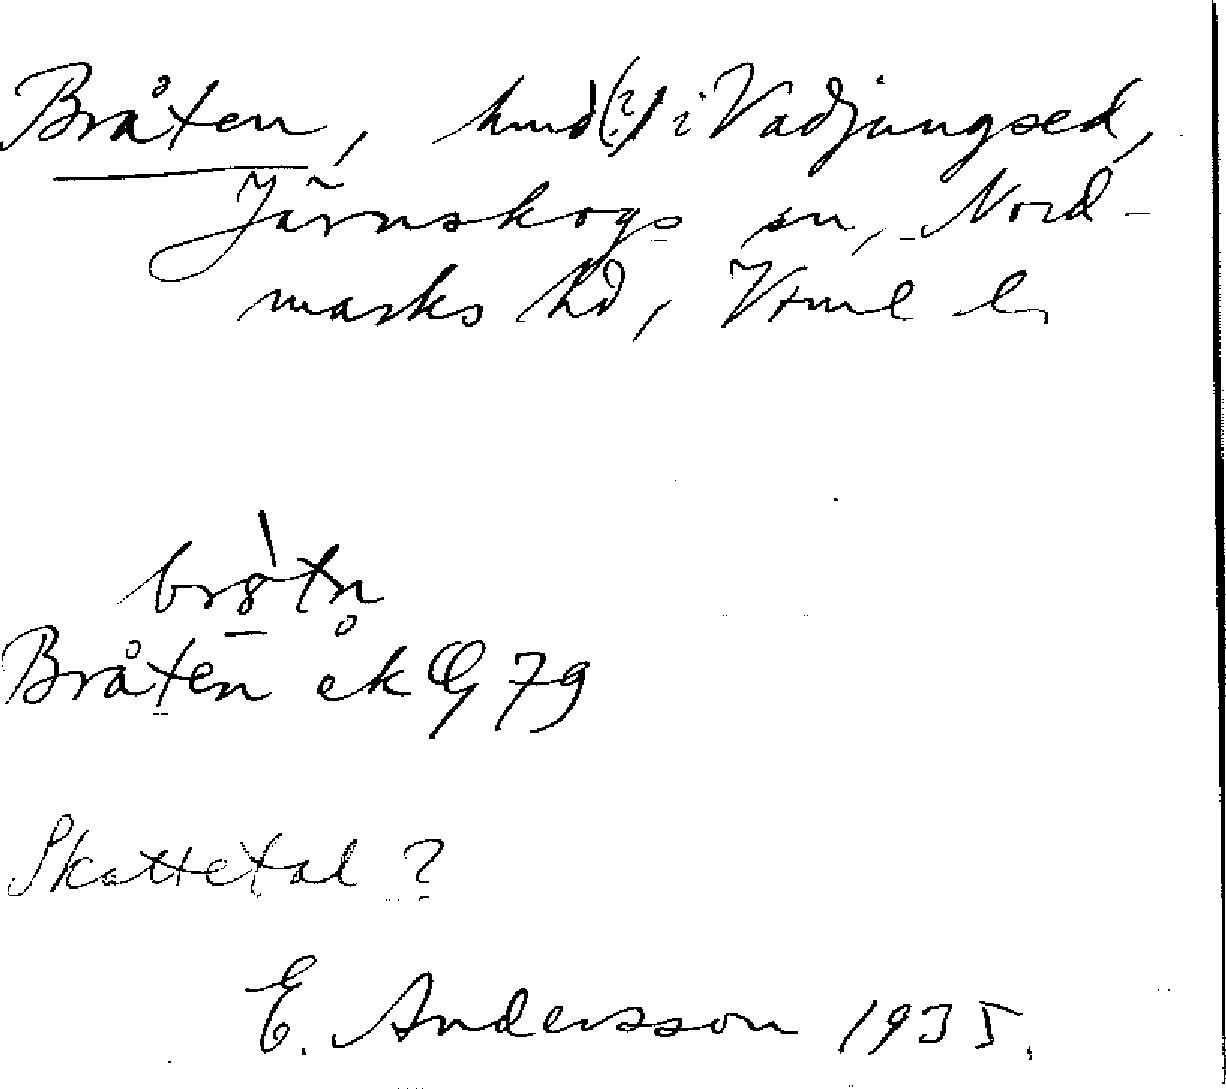 Bråten, hmd(?) i Vadjungsed,
Järnskogs sn, Nord-
marks hd, Vrml l.
Bråten ek G 79
Skattetal?
E. Andersson 1935.